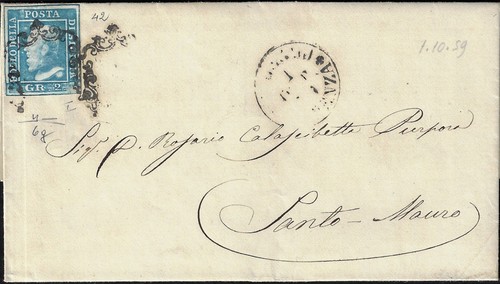 42
POSTA
BOLLO DELLA
DI SICILIA
GR. 2
1.10.59
I
4
68
Sigr. D. Rosario Calascibetta Purpora
Santo-Mauro